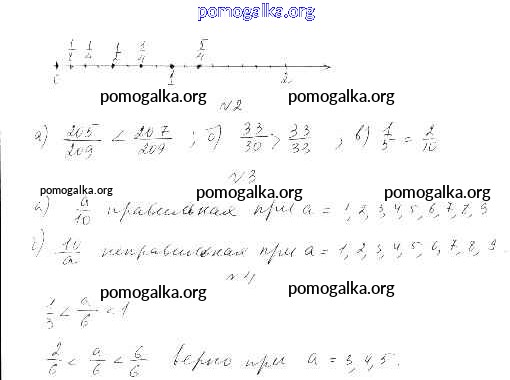 pomogalka.org
1/8 1/4 1/2 3/4 5/4
0 1 2
pomogalka.org pomogalka.org
№2
а) 205/209 < 207/209 ; б) 33/30 > 33/32 , в) 1/5 = 2/10
№3
pomogalka.org pomogalka.org pomogalka.org
а) a/10 правильная при a = 1, 2, 3, 4, 5, 6, 7, 8, 9
10/a неправильная при a = 1, 2, 3, 4, 5, 6, 7, 8, 9.
№4
pomogalka.org pomogalka.org
1/3 < a/6 < 1
2/6 < a/6 < 6/6 верно при a = 3, 4, 5.
pomogalka.org